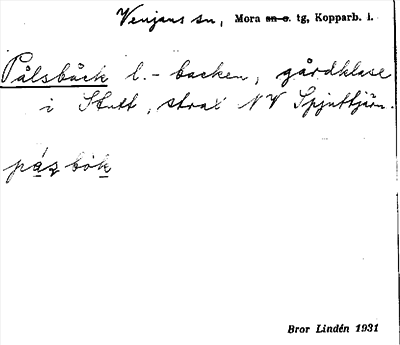 Venjans sn, Mora sn o. tg, Kopparb. l.
Pålsbäck l. - backen, gårdklase
i Stutt, strax NV Spjuttjärn.
påsbök
Bror Lindén 1931